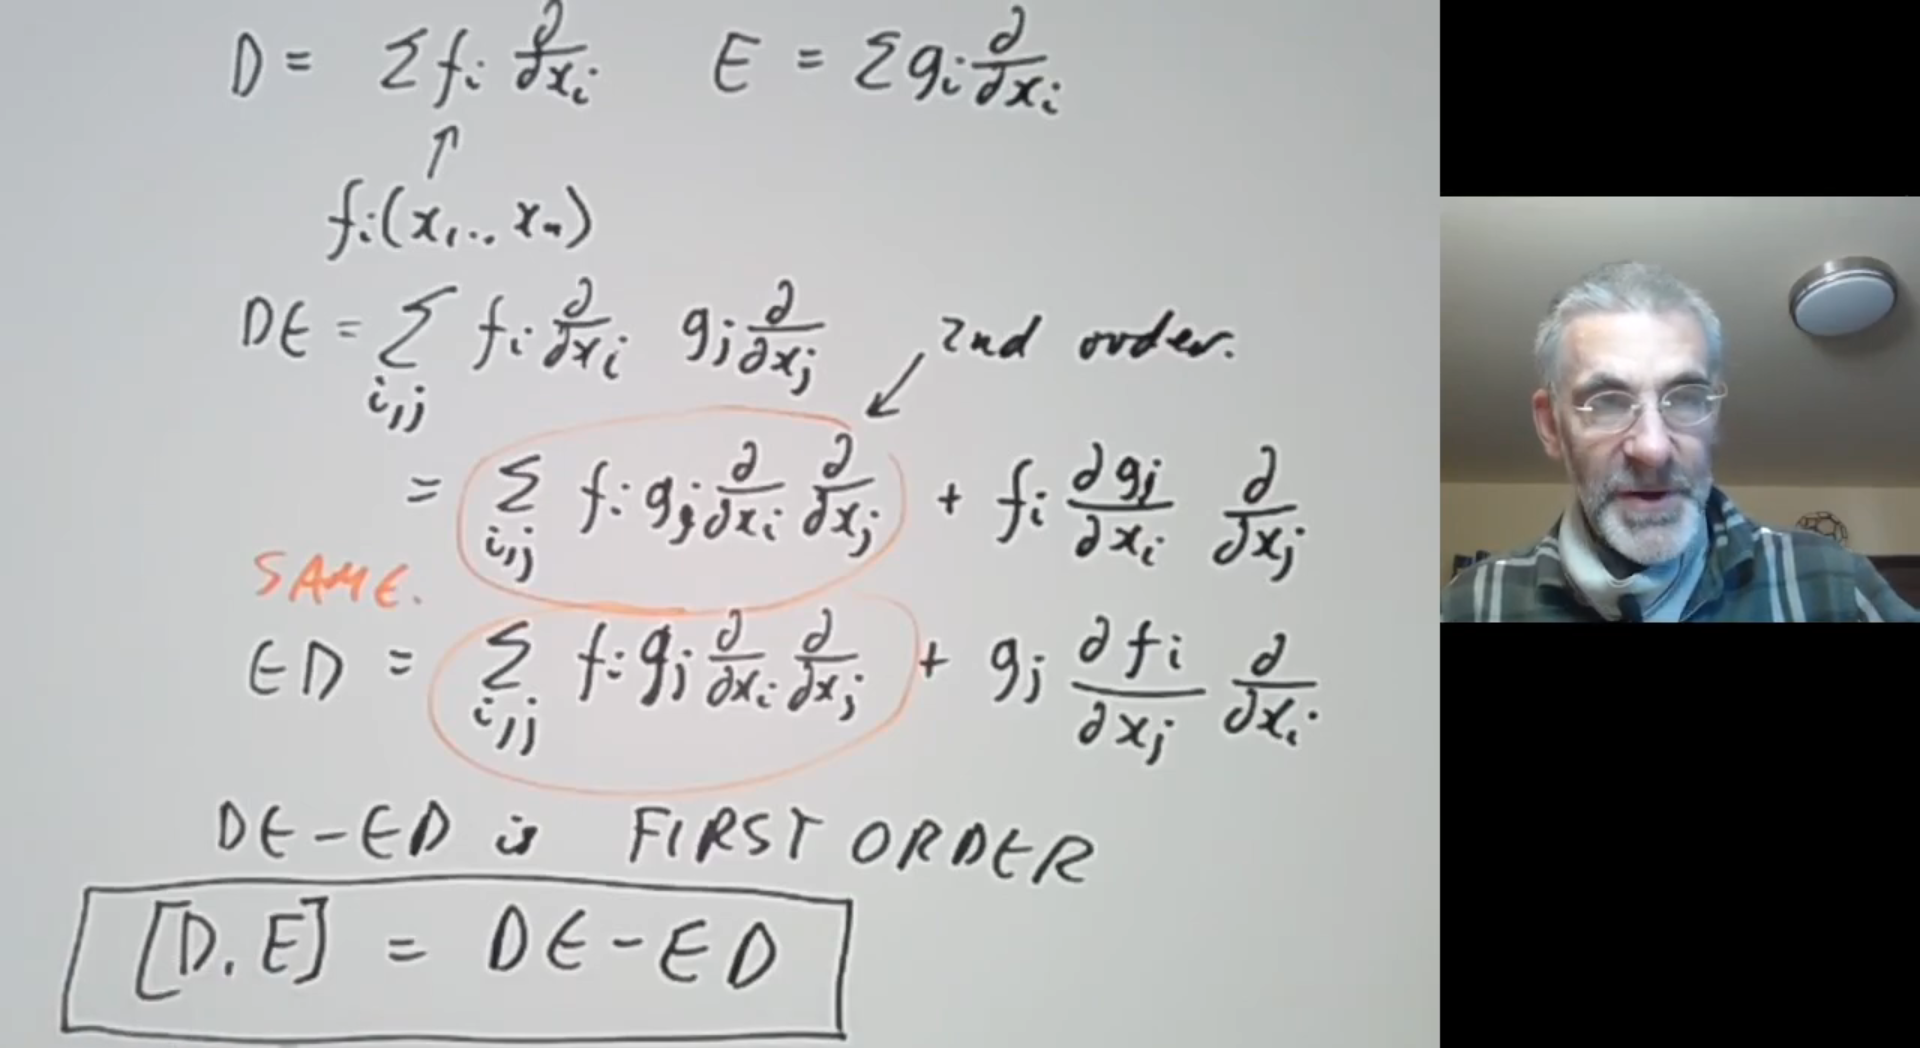 D = Σ fᵢ ∂/∂xᵢ E = Σ gᵢ ∂/∂xᵢ
↑
fᵢ(x₁.. xₙ)
DE = Σ_{i,j} fᵢ ∂/∂xᵢ gⱼ ∂/∂xⱼ 2nd order.
= Σ_{i,j} fᵢ gⱼ ∂/∂xᵢ ∂/∂xⱼ + fᵢ ∂gⱼ/∂xᵢ ∂/∂xⱼ
SAME.
ED = Σ_{i,j} fᵢ gⱼ ∂/∂xᵢ ∂/∂xⱼ + gⱼ ∂fᵢ/∂xⱼ ∂/∂xᵢ
DE - ED is FIRST ORDER
[D, E] = DE - ED